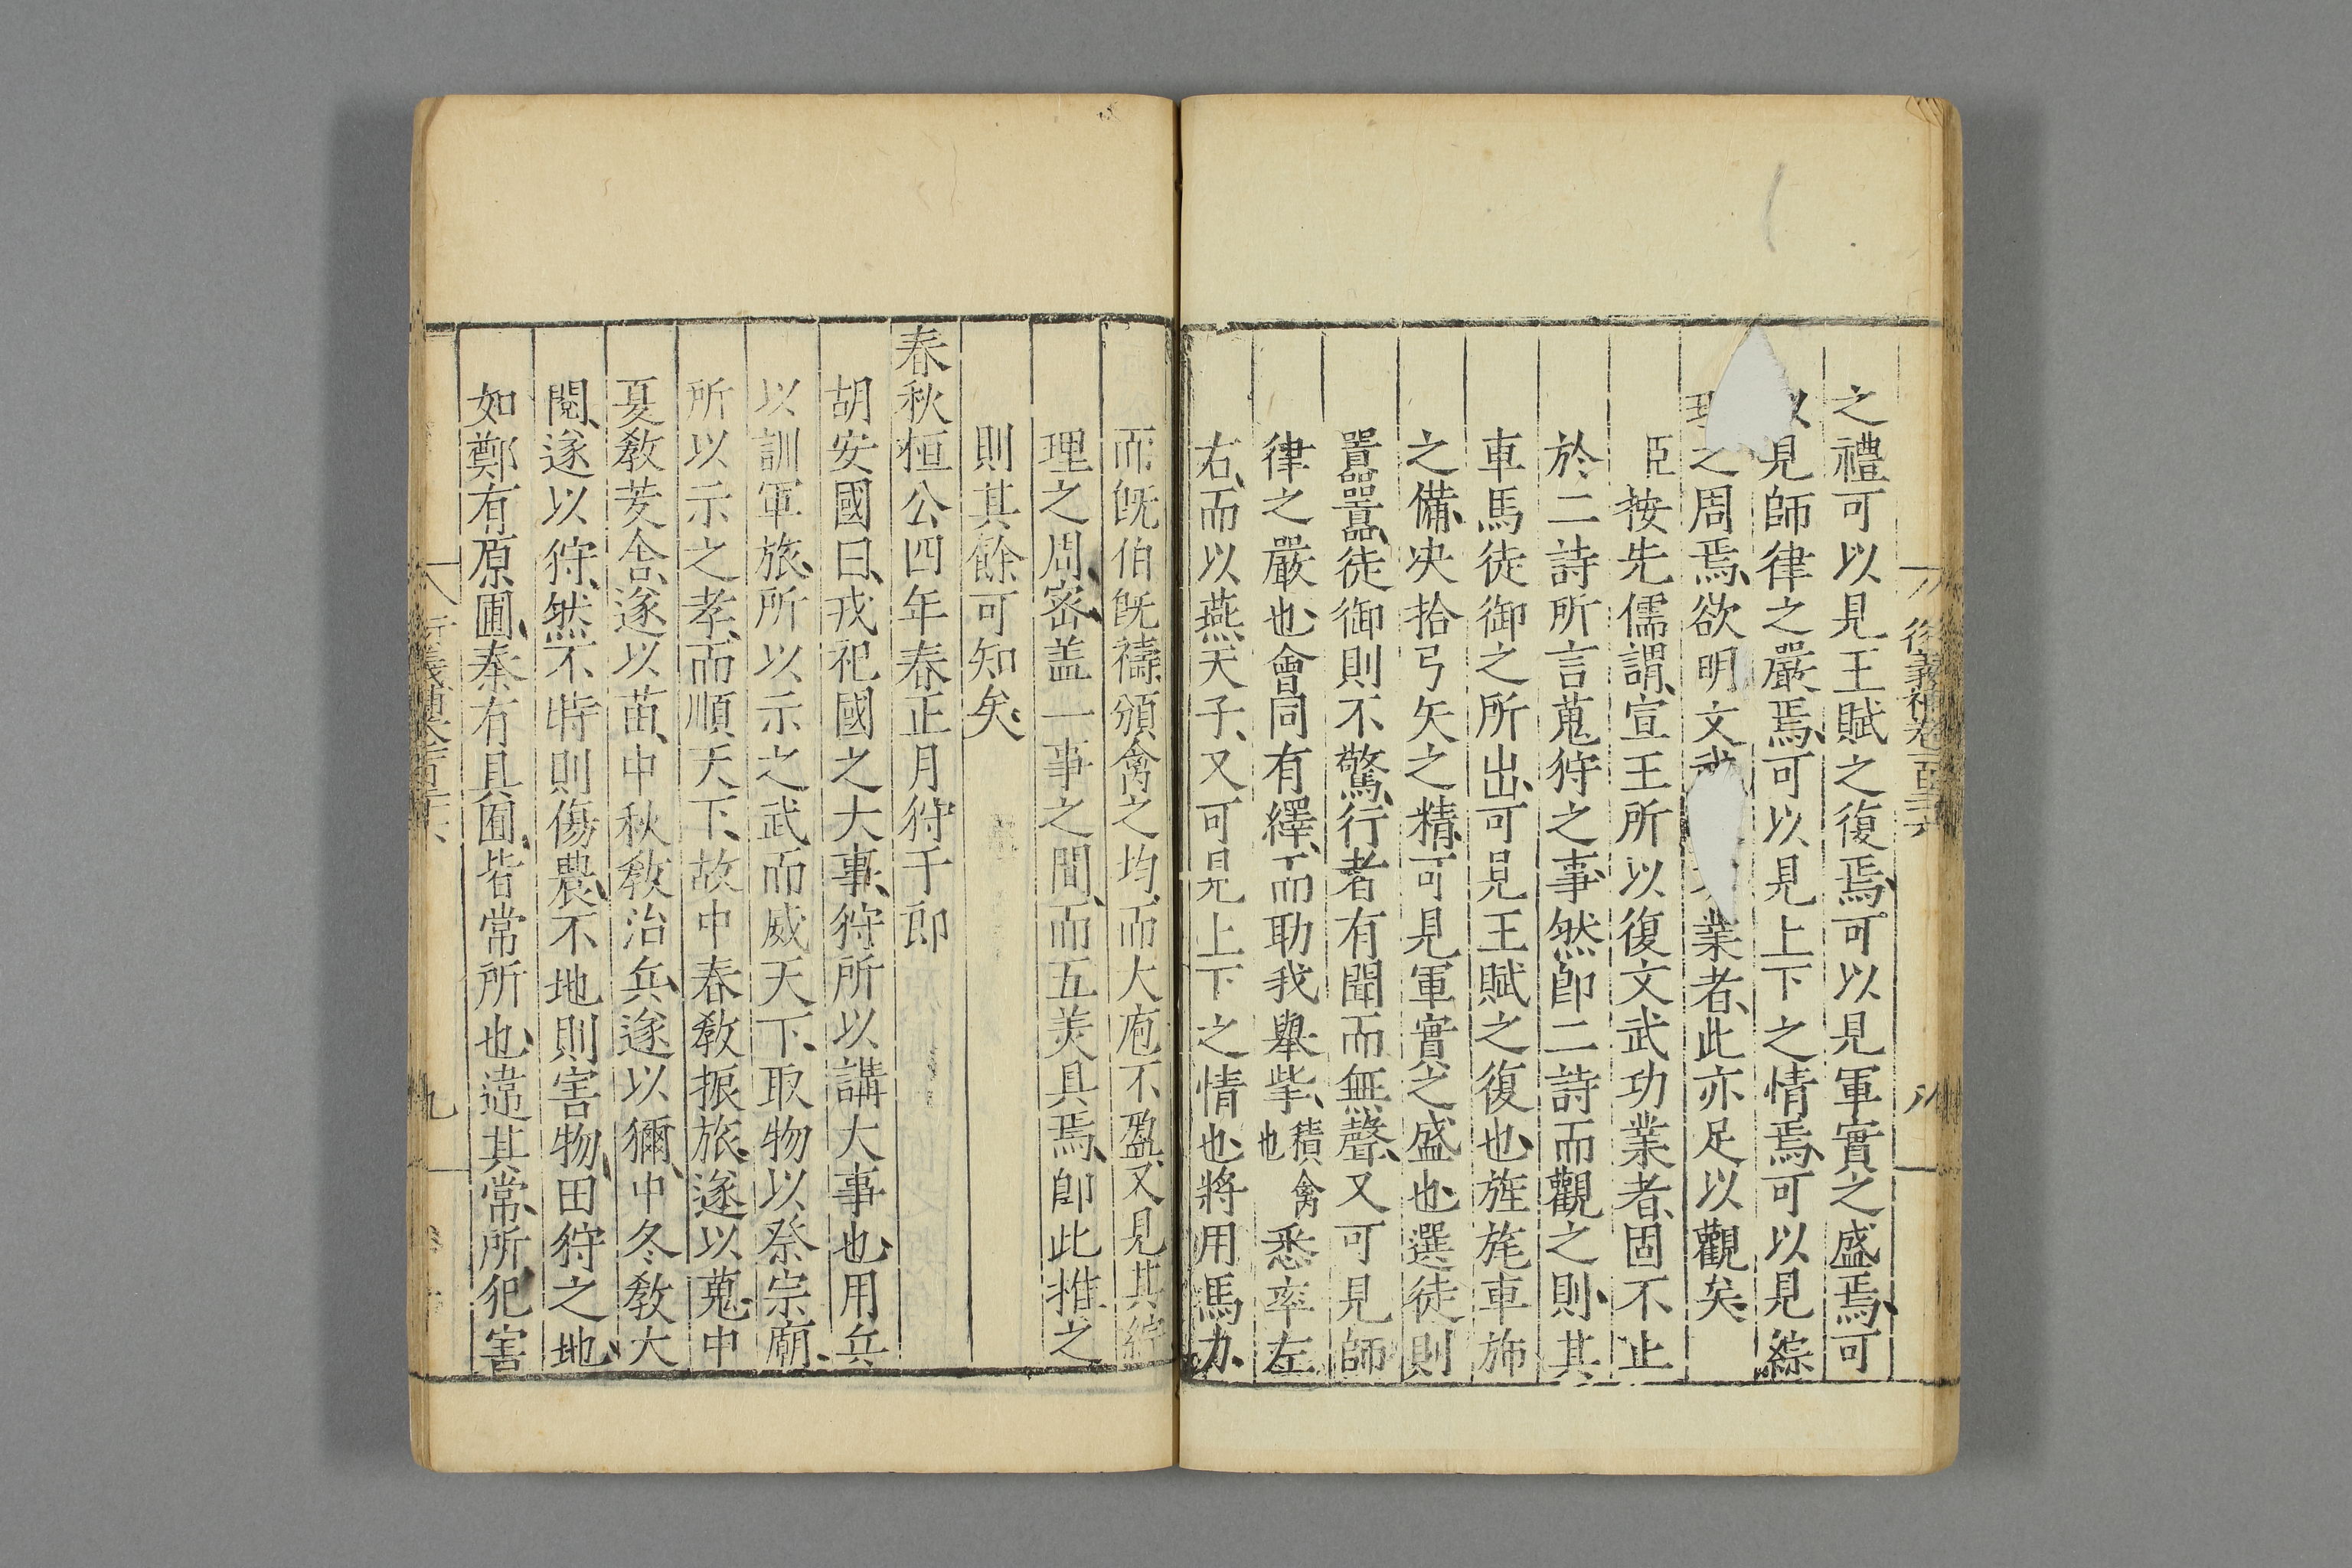 衍義補卷百三十六
之禮可以見王賦之復焉、可以見軍實之盛焉、可
以見師律之嚴焉、可以見上下之情焉、可以見綜
理之周焉、欲明文武業者、此亦足以觀矣
臣按先儒謂、宣王所以復文武功業者、固不止
於二詩所言蒐狩之事、然卽二詩而觀之則、其
車馬徒御之所出、可見王賦之復也、旌旄車斾
之備、決拾弓矢之精、可見軍實之盛也、選徒則
囂囂、徒御則不驚、行者有聞而無聲、又可見師
律之嚴也、會同有繹、而助我舉柴、積禽也悉率左
右、而以燕天子、又可見上下之情也、將用馬力、
而旣伯旣禱、頒禽之均、而大庖不盈又見其綜
理之周密、盖一事之間、而五美具焉、卽此推之
則其餘可知矣、
春秋桓公四年春正月狩于郎
胡安國曰、戎祀國之大事、狩所以講大事也、用兵
以訓軍旅、所以示之武而威天下、取物以祭宗廟、
所以示之孝、而順天下、故中春敎振旅、遂以蒐、中
夏敎茇舍、遂以苗、中秋敎治兵、遂以獮、中冬敎大
閱、遂以狩、然不時則傷農、不地則害物、田狩之地、
如鄭有原圃、秦有具囿、皆常所也、違其常所、犯害
九